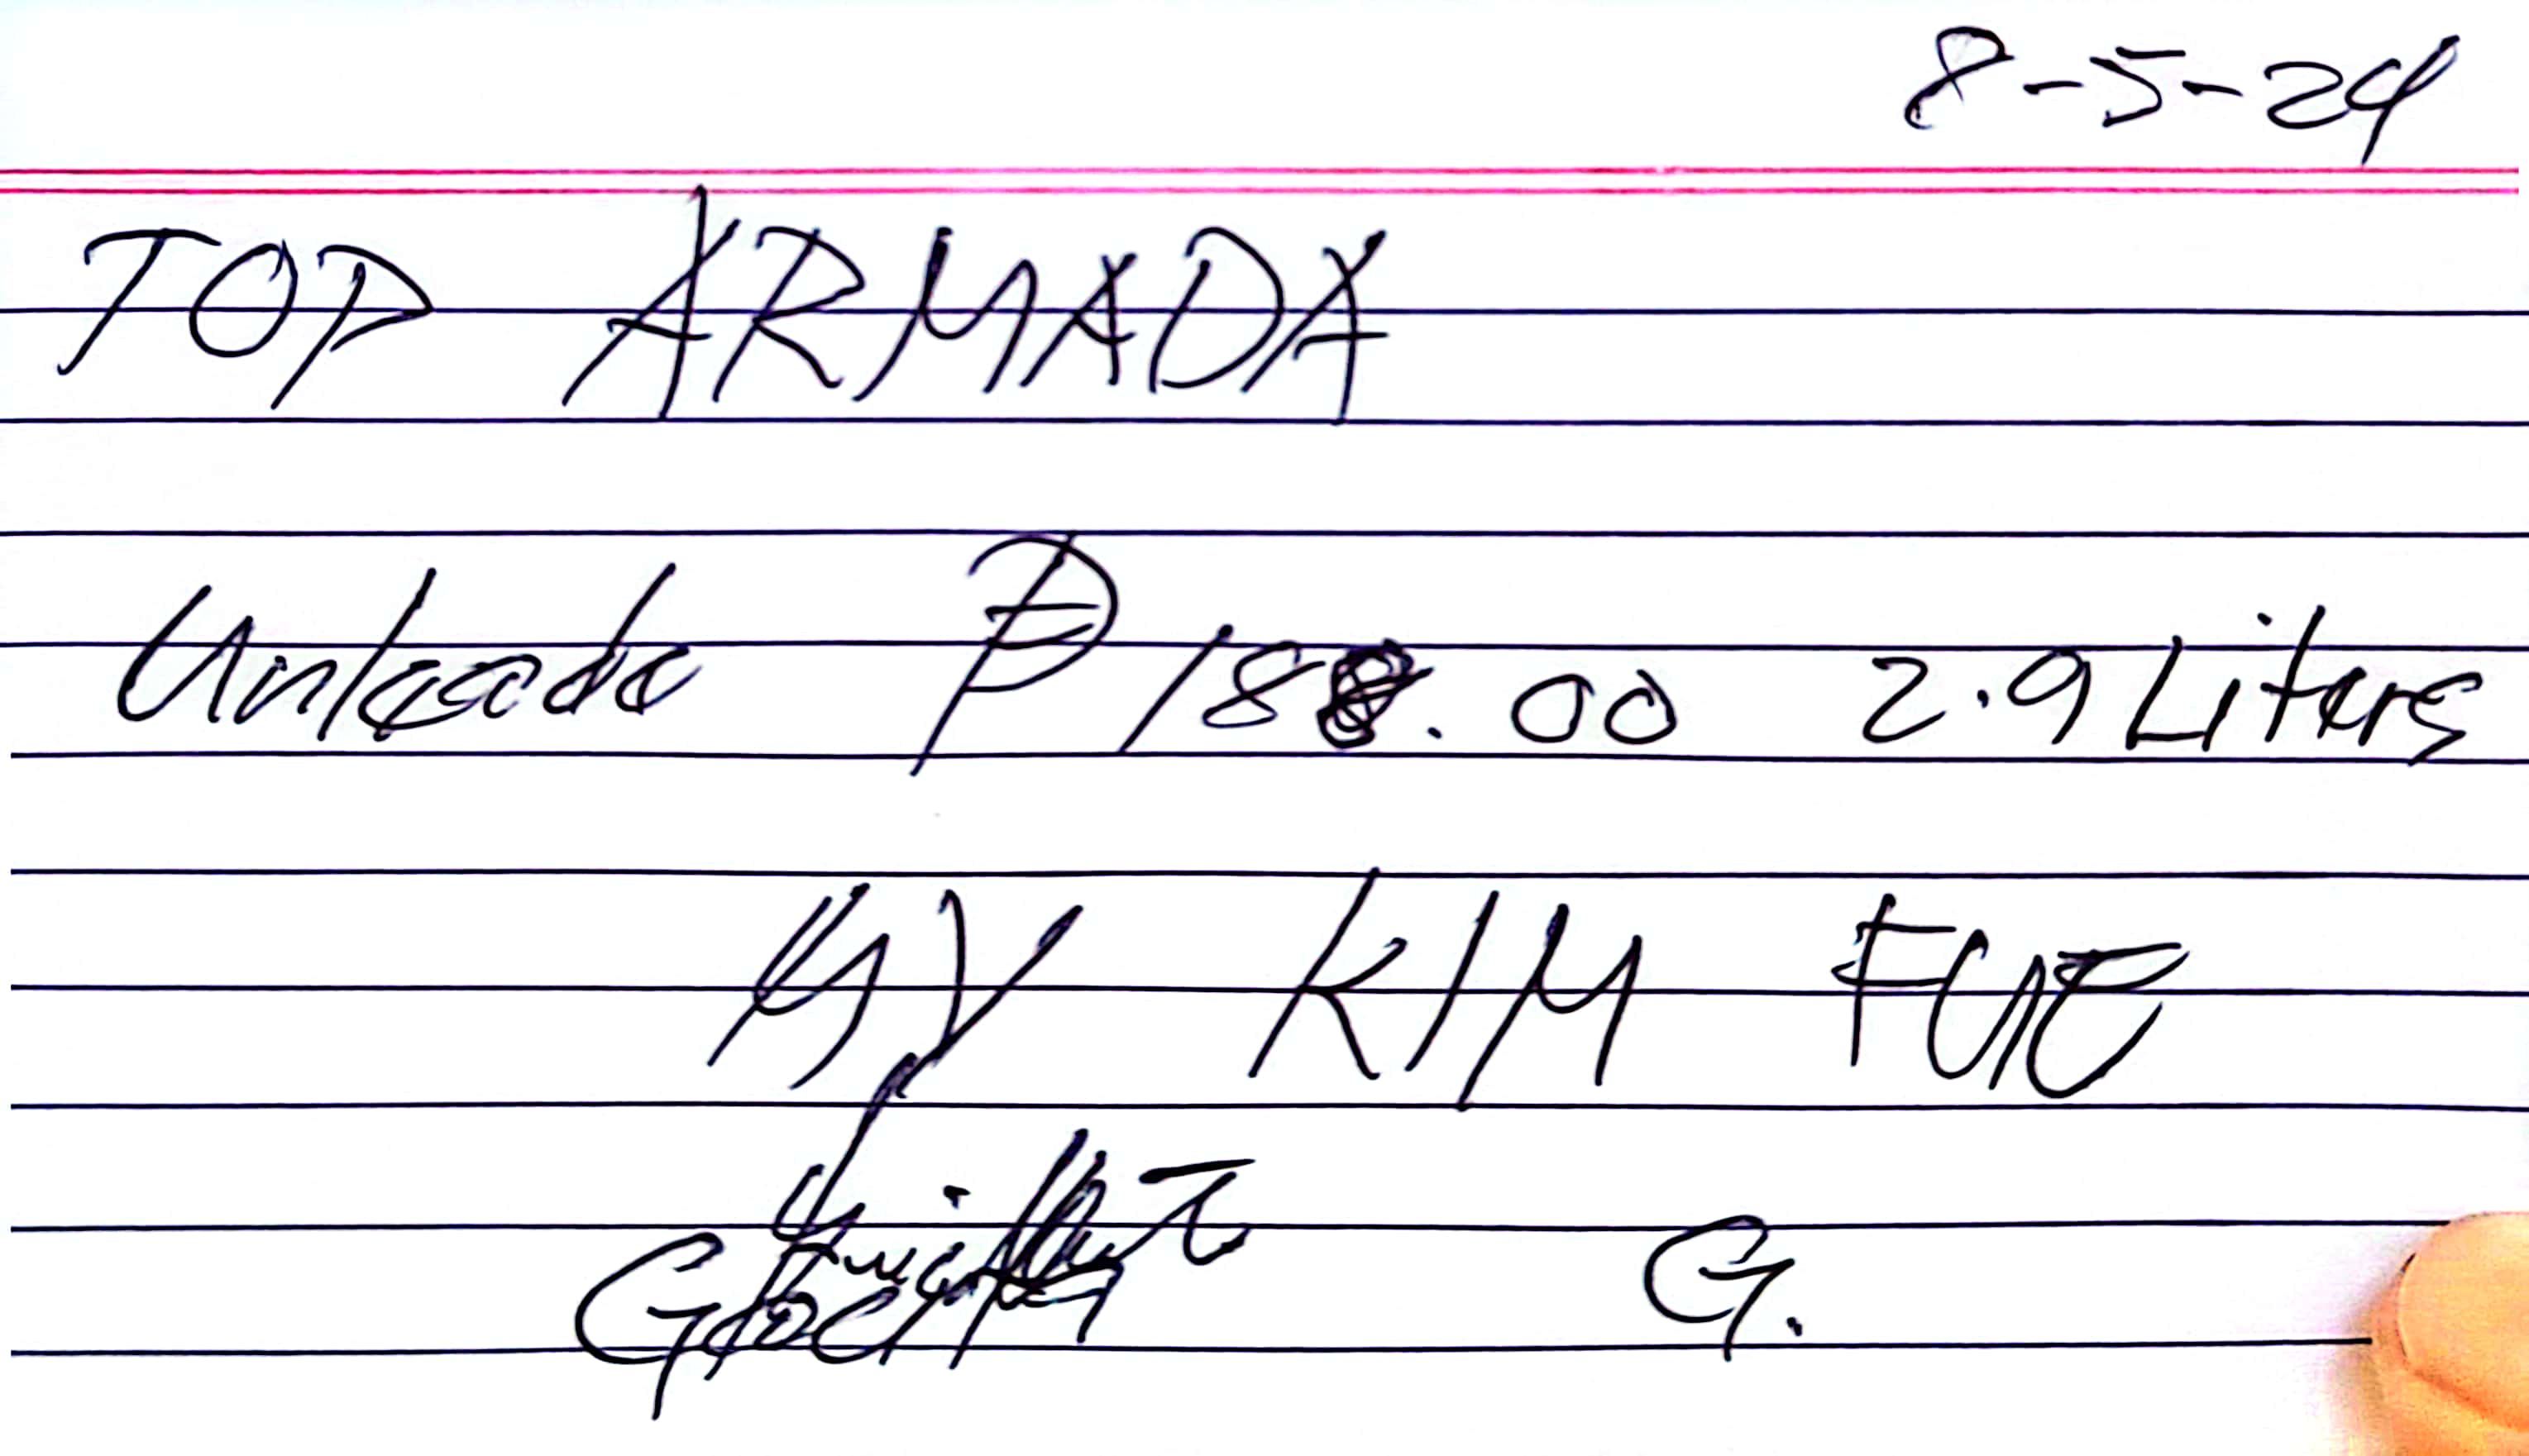 8-5-24
TOP ARMADA
Unleade ₱188.00 2.9 Liters
MV KIM FUE
G.